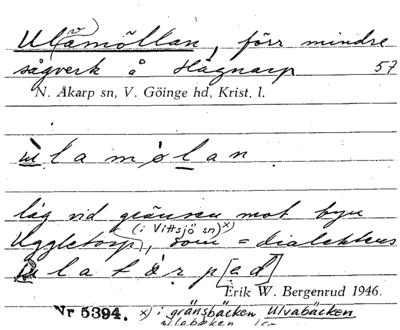 Ul(v)amöllan, förr mindre
sågverk å Hägnarp 57
N. Åkarp sn, V. Göinge hd, Krist. l.
u l a m ö l a n
låg vid gränsen mot byn
(i Vittsjö sn) x)
Uggletorp, som = dialektens
u l a t ö r p [e d]
Erik W. Bergenrud 1946.
Nr 5394. x) i gränsbäcken Ulvabäcken